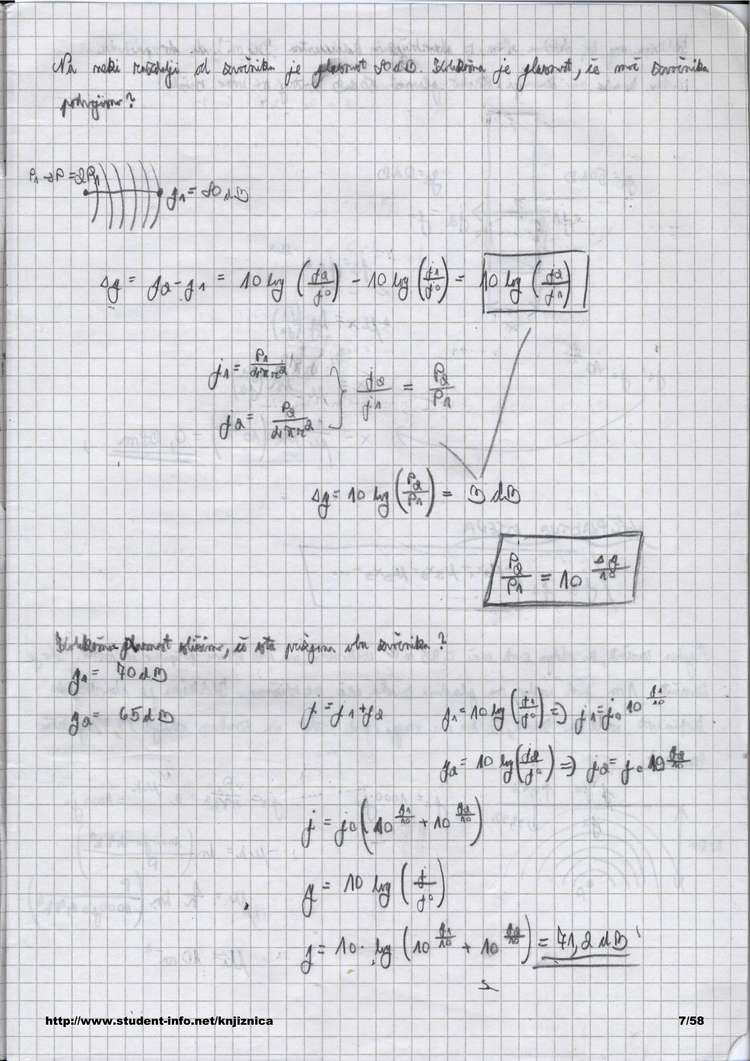 Na neki razdalji od zvočnika je glasnost 90 dB. Kolikšna je glasnost, če moč zvočnika
podvojimo?
P1 → P = 2P1
g1 = 90 dB
Δg = g2 - g1 = 10 log (j2/j0) - 10 log (j1/j0) = 10 log (j2/j1)
j1 = P1/4πr²
j2 = P2/4πr² } j2/j1 = P2/P1
Δg = 10 log (P2/P1) = 3 dB
P2/P1 = 10^(Δg/10)
Kolikšno glasnost slišimo, če sta prižgana oba zvočnika?
g1 = 70 dB
g2 = 65 dB j = j1 + j2 g1 = 10 log (j1/j0) => j1 = j0 10^(g1/10)
g2 = 10 log (j2/j0) => j2 = j0 10^(g2/10)
j = j0 (10^(g1/10) + 10^(g2/10))
g = 10 log (j/j0)
g = 10 · log (10^(g1/10) + 10^(g2/10)) = 71,2 dB
http://www.student-info.net/knjiznica 7/58